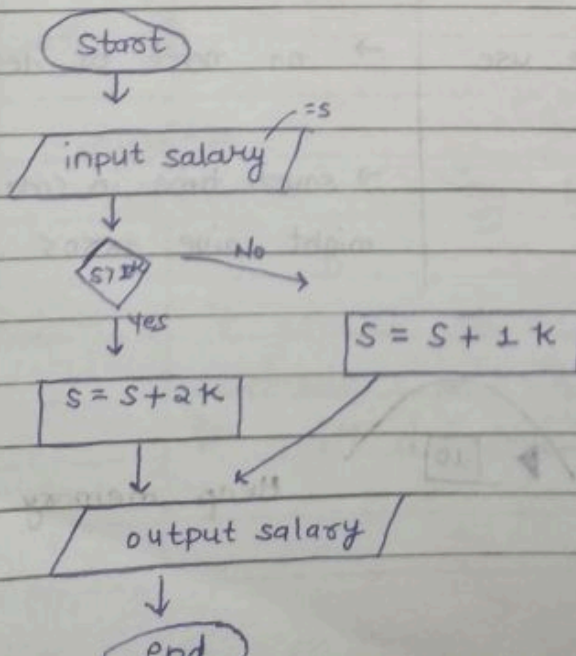 Start
=S
input salary
No
Yes
S = S + 1 K
S = S + 2 K
output salary
end